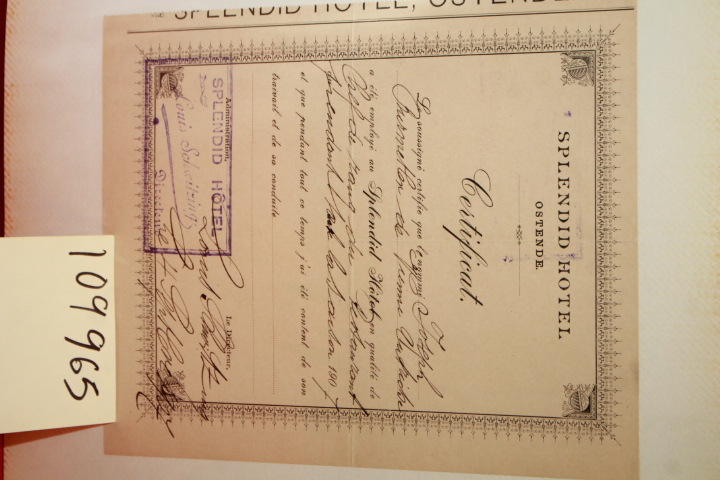 SPLENDID HOTEL, OSTENDE
SPLENDID HOTEL
OSTENDE.
Certificat.
Le soussigné certifie que le nommé Joseph
a été employé au Splendid Hôtel en qualité de
Chef de rang du Restaurant
pendant la Saison 1907
et que pendant tout ce temps j'ai été content de son
travail et de sa conduite.
Le Directeur,
Administration,
SPLENDID HOTEL
Louis
109965